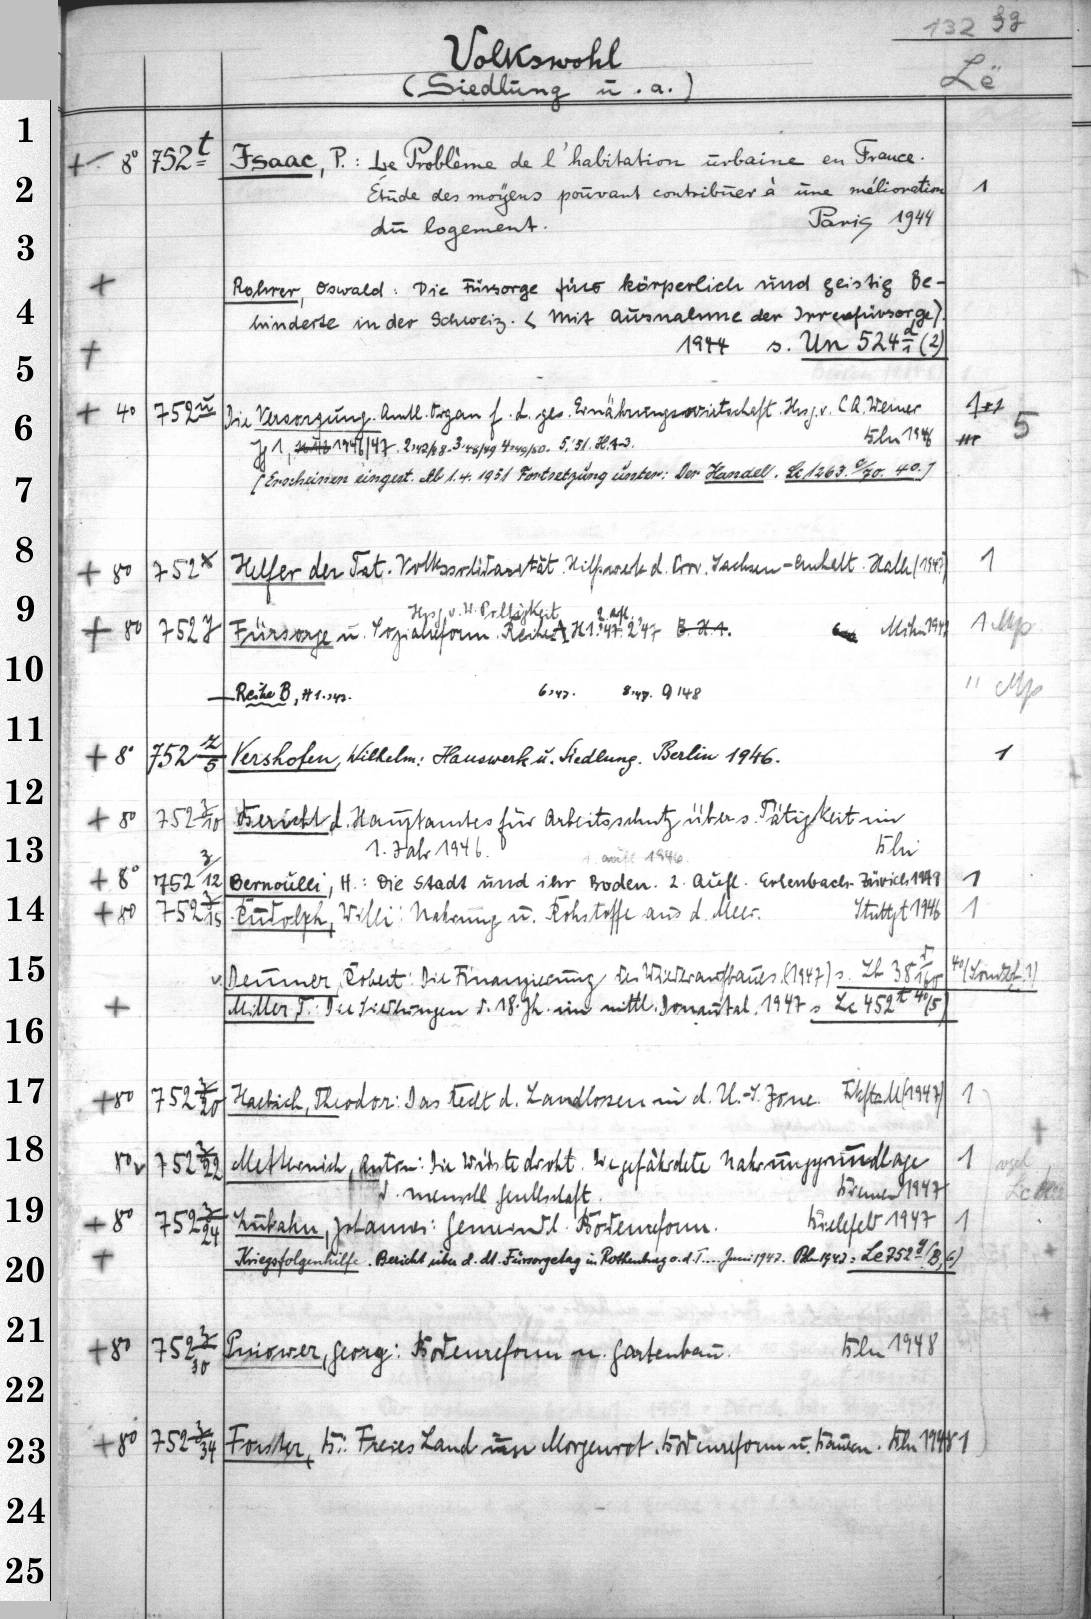 132 39
Volkswohl
(Siedlung u. a.)
Lë
1
+ 8° 752 t Isaac, P.: Le Problème de l'habitation urbaine en France.
2
Étude des moyens pouvant contribuer à une mélioration 1
du logement. Paris 1944
3
+ Rohrer, Oswald: Die Fürsorge für körperlich und geistig Be-
4
hinderte in der Schweiz. (Mit Ausnahme der Irrenfürsorge).
+ 1944 s. Un 524 d/1 (2)
5
+ 4° 752 u Die Versorgung. Amtl. Organ f. d. ges. Ernährungswirtschaft. Hrsg. v. C.A. Werner
6
Jg 1, 1946/47. 2,47/48. 3,48/49 4,49/50. 5,51. Bln 1946 5
[Erscheinen eingest. Ab 1.4.1951 Fortsetzung unter: Der Handel. Lc 1263. c/70. 4°.]
7
8
+ 8° 752 x Helfer der Tat. Volkssolidarität. Hilfswerk d. Prov. Sachsen-Anhalt. Halle (1947) 1
9
Hrsg. v. W. Polligkeit 2. Afl.
+ 8° 752 y Fürsorge u. Sozialreform. Reihe A, H 1. '47. 2 '47 B. H. 1. Mchn 1947 1 Mp
10
Reihe B, H 1. '47. 6,47. 8,47. 9 '48 " Mp
11
+ 8° 752 z/5 Vershofen, Wilhelm: Hauswerk u. Siedlung. Berlin 1946. 1
12
+ 8° 752 z/10 Bericht d. Hauptamtes für Arbeitsschutz über s. Tätigkeit im
13
1. Jahr 1946. Bln
1. Aufl 1946.
+ 8° 752 z/12 Bernoulli, H.: Die Stadt und ihr Boden. 2. Aufl. Erlenbach-Zürich 1949 1
14
+ 8° 752 z/15 Rudolph, Willi: Nahrung u. Rohstoffe aus d. Meer. Stuttgt 1946 1
15
v. Demmer, Robert: Die Finanzierung des Wiederaufbaues. (1947) s. 38 5/160 4°
+ Miller, T.: Die Siedlungen d. 18. Jh. im mittl. Donautal. 1947 s Le 452 t 4° (5)
16
17
+ 8° 752 z/20 Haebich, Theodor: Das Recht d. Landlosen in d. U.-S. Zone. (1947) 1
18
8° v 752 z/22 Metternich, Anton: Die Wüste droht. Die gefährdete Nahrungsgrundlage 1
d. menschl Gesellschaft. Bremen 1947
19
+ 8° 752 z/24 Lubahn, Johannes: Gemeindl. Bodenreform. Bielefeld 1947 1
+ Kriegsfolgenhilfe. Bericht über d. dt. Fürsorgetag in Rothenburg o. d. T.... Juni 1947. Bln 1947 = Le 752 y (B, 6)
20
21
+ 8° 752 z/30 Pniower, Georg: Bodenreform u. Gartenbau. Bln 1948
22
23
+ 8° 752 z/34 Forster, B.: Freies Land im Morgenrot. Bodenreform u. Bauen. Bln 1948 1
24
25